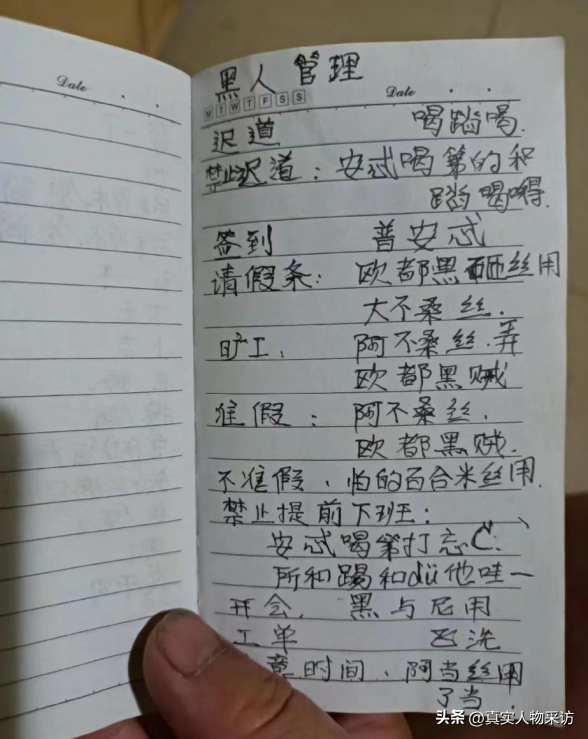 黑人管理
Date
M T W T F S S
Date
迟道 喝踏喝.
禁止迟道: 安忒喝第的和
踏喝嘚.
签到 普安忒
请假条: 欧都黑砸丝用
大不桑丝.
旷工, 阿不桑丝.弄
欧都黑贼
准假: 阿不桑丝.
欧都黑贼.
不准假、怕的百合米丝用.
禁止提前下班:
安忒喝第打忘C.
所和踢和dü他哇一
开会, 黑与尼用
工单 飞洗
意时间、阿当丝用
了当.
头条 @真实人物采访